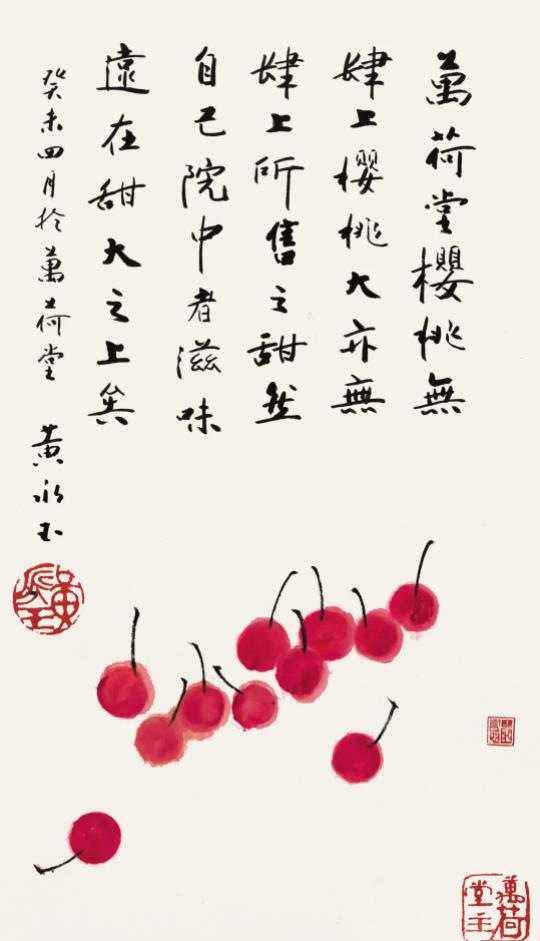 萬荷堂櫻桃無
肆上櫻桃大亦無
肆上所售之甜然
自己院中者滋味
遠在甜大之上矣
癸未四月於萬荷堂 黃永玉
黃永玉
萬荷堂主